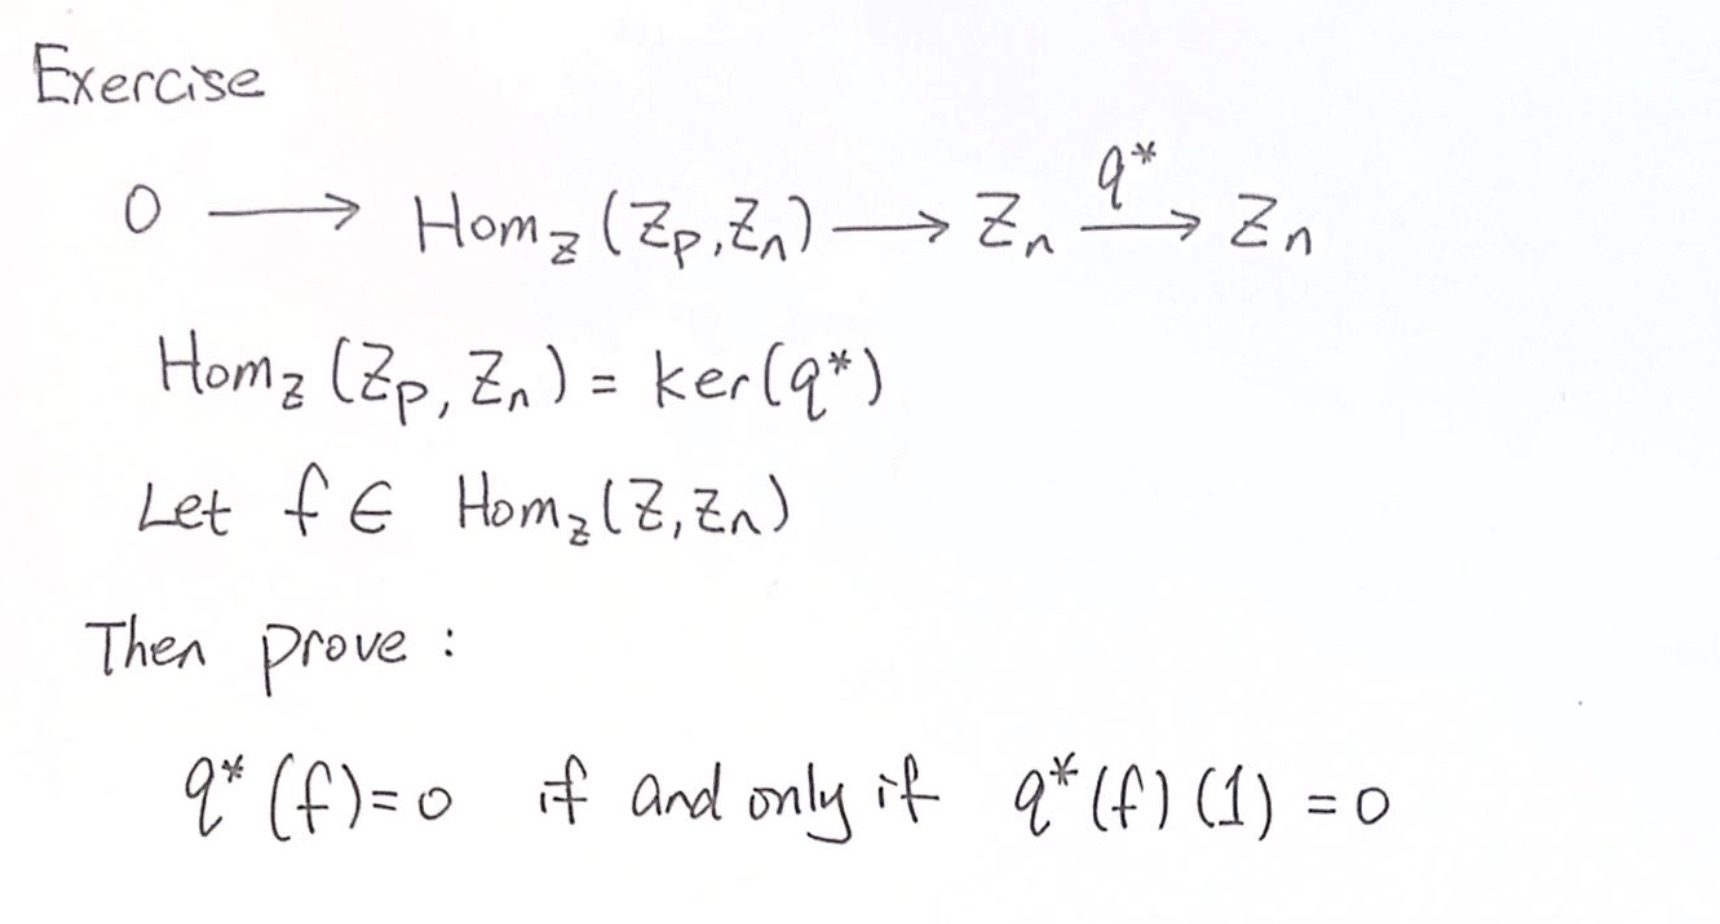 Exercise
0 ⟶ Hom_Z (Z_p, Z_n) ⟶ Z_n \xrightarrow{q*} Z_n
Hom_Z (Z_p, Z_n) = ker(q*)
Let f ∈ Hom_Z (Z, Z_n)
Then prove :
q* (f) = 0 if and only if q* (f) (1) = 0